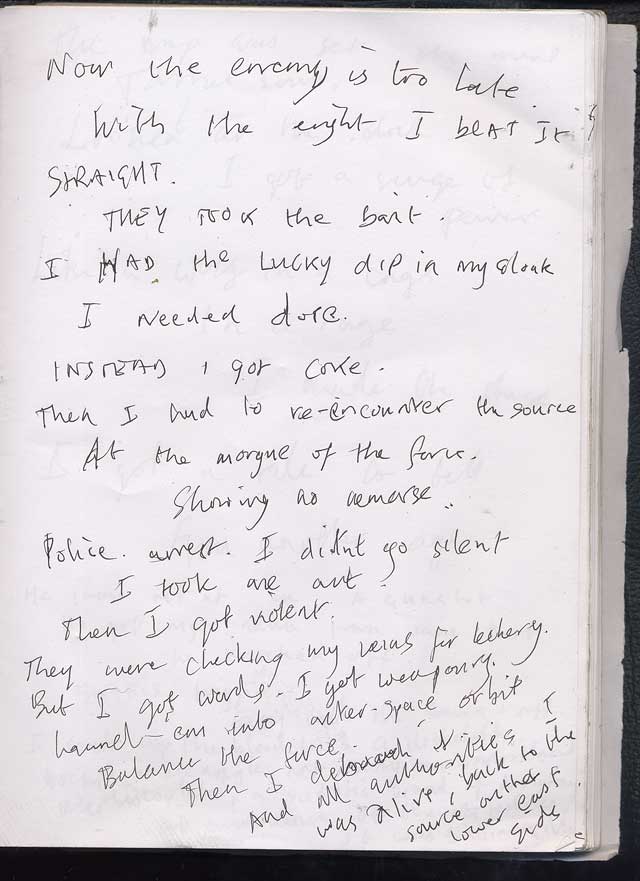 Now the enemy is too late.
With the eight I beat it
STRAIGHT.
THEY TOOK the bait.
I HAD the LUCKY dip in my cloak
I needed dope.
INSTEAD I got coke.
Then I had to re-encounter the source
At the morgue of the force.
Showing no remorse..
Police. arrest. I didnt go silent
I took one out.
Then I got violent.
They were checking my veins for
But I got words. I got weaponry.
launch em into outer-space orbit
Balance the force.
Then I
And all authorities I
was alive, back to the
source on the
lower east
side